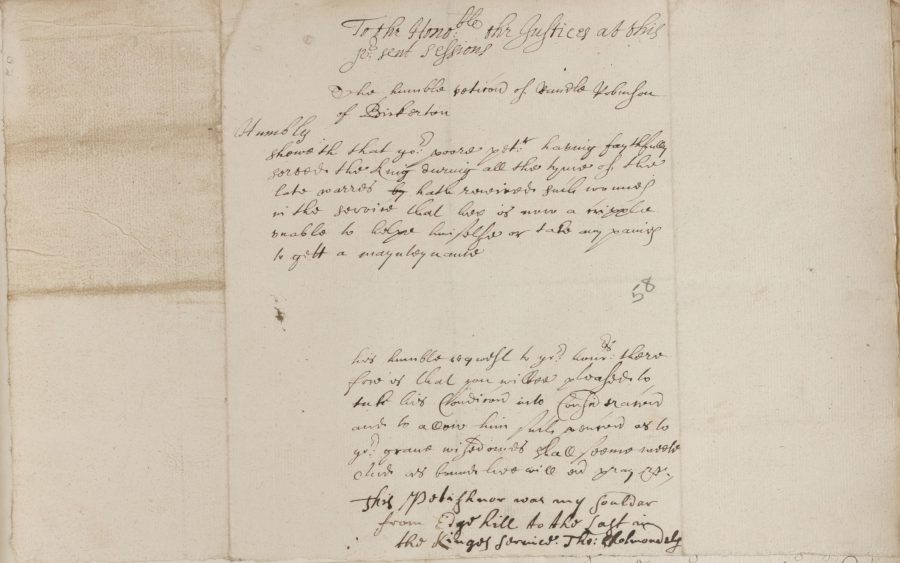 To the Hono:ble the Justices at this
pr:sent Sessions
The humble peticon of Randle Robinson
of Bickerton
Humbly
sheweth that yor: poore petr: having faythfully
served the King during all the tyme of the
late warres by hath received such woundes
in the service that hee is now a cripple
unable to helpe himselfe or take any paines
to gett a maynteynance
58
his humble request to yor: honrs: there
fore is that you wilbee pleased to
take his Condicon into Consideracion
and to allow him such pencion as to
yor: grave wisedomes shall seeme meete
And as bound hee will ed pray &c
This Petishnor was my souldar
from Edge hill to the Last in
the Kinges service: Tho: Cholmondely